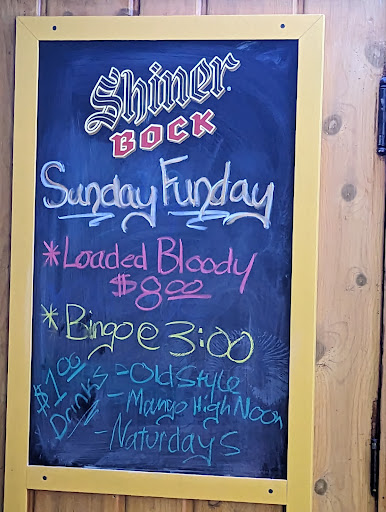 Shiner
BOCK
Sunday Funday
*Loaded Bloody
$8.00
* Bingo @ 3:00
$1.00 Drinks - Old Style
- Mango High Noon
- Naturdays